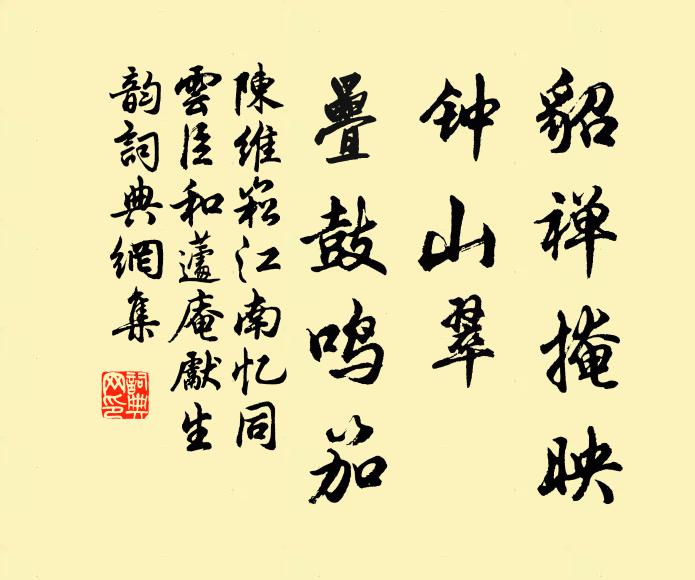 貂禅掩映
钟山翠
疊鼓鸣笳
陳維崧江南忆同
雲臣和蘧庵獻生
韵詞典網集
詞典
网印